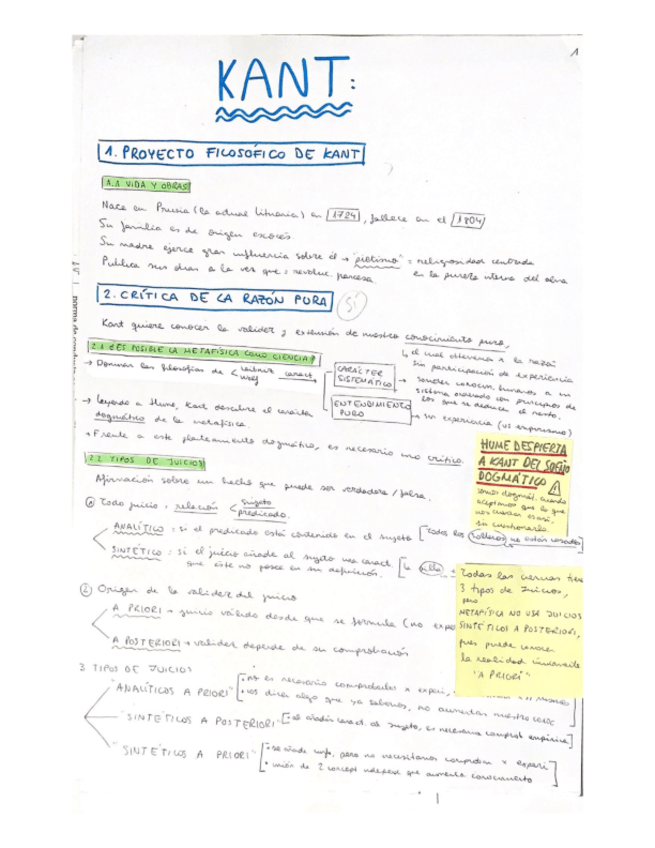 1
KANT:
1. PROYECTO FILOSÓFICO DE KANT
1.1 VIDA Y OBRAS
Nace en Prusia (la actual Lituania) en 1724, fallece en el 1804
Su familia es de origen escocés
Su madre ejerce gran influencia sobre él → "pietismo" = religiosidad centrada
en la pureza interna del alma
Publica sus obras a la vez que = revoluc. francesa
2. CRÍTICA DE LA RAZÓN PURA
Sí
Kant quiere conocer la validez y extensión de nuestro conocimiento puro,
↳ el cual obtenemos x la razón
sin participación de experiencia
2.1 ¿ES POSIBLE LA METAFÍSICA COMO CIENCIA?
→ Dominan las filosofías de < Leibniz caract.
Wolf
CARÁCTER SISTEMÁTICO → someter conocim. humanos a un
sistema ordenado con principios de
los que se deduce el resto.
ENTENDIMIENTO PURO → sin experiencia (vs empirismo)
→ Leyendo a Hume, Kant descubre el carácter
dogmático de la metafísica.
→ Frente a este planteamiento dogmático, es necesario uno crítico.
HUME DESPIERTA
A KANT DEL SUEÑO
DOGMÁTICO
somos dogmát. cuando
aceptamos que lo que
nos cuentan es así,
sin cuestionarlo.
2.2 TIPOS DE JUICIOS
Afirmación sobre un hecho que puede ser verdadera / falsa.
① Todo juicio = relación < sujeto
predicado.
ANALÍTICO = si el predicado está contenido en el sujeto [Todos los solteros no están casados
SINTÉTICO = si el juicio añade al sujeto una caract.
que éste no posee en su definición. [la silla
Todas las ciencias tiene
3 tipos de juicios,
pero
METAFÍSICA NO USA JUICIOS
SINTÉTICOS A POSTERIORI,
pues puede conocer
la realidad únicamente
"A PRIORI"
② Origen de la validez del juicio
A PRIORI → juicio válido desde que se formula (no expe
A POSTERIORI → validez depende de su comprobación
3 TIPOS DE JUICIOS
"ANALÍTICOS A PRIORI" [• no es necesario comprobarlos x experi,
• nos dicen algo que ya sabemos, no aumentan nuestro conoc
"SINTÉTICOS A POSTERIORI" [• al añadir caract. al sujeto, es necesaria comprob empírica]
"SINTÉTICOS A PRIORI" [• se añade info, pero no necesitamos comprobar x experi
• unión de 2 concept independ que aumenta conocimiento]